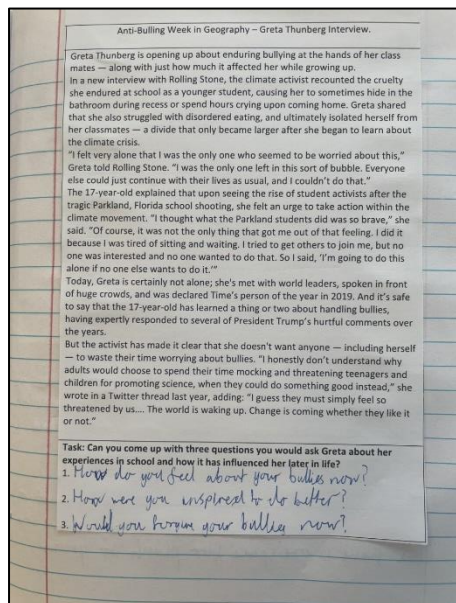 Anti-Bulling Week in Geography – Greta Thunberg Interview.
Greta Thunberg is opening up about enduring bullying at the hands of her class
mates — along with just how much it affected her while growing up.
In a new interview with Rolling Stone, the climate activist recounted the cruelty
she endured at school as a younger student, causing her to sometimes hide in the
bathroom during recess or spend hours crying upon coming home. Greta shared
that she also struggled with disordered eating, and ultimately isolated herself from
her classmates — a divide that only became larger after she began to learn about
the climate crisis.
“I felt very alone that I was the only one who seemed to be worried about this,”
Greta told Rolling Stone. “I was the only one left in this sort of bubble. Everyone
else could just continue with their lives as usual, and I couldn’t do that.”
The 17-year-old explained that upon seeing the rise of student activists after the
tragic Parkland, Florida school shooting, she felt an urge to take action within the
climate movement. “I thought what the Parkland students did was so brave,” she
said. “Of course, it was not the only thing that got me out of that feeling. I did it
because I was tired of sitting and waiting. I tried to get others to join me, but no
one was interested and no one wanted to do that. So I said, ‘I’m going to do this
alone if no one else wants to do it.’”
Today, Greta is certainly not alone; she's met with world leaders, spoken in front
of huge crowds, and was declared Time’s person of the year in 2019. And it’s safe
to say that the 17-year-old has learned a thing or two about handling bullies,
having expertly responded to several of President Trump’s hurtful comments over
the years.
But the activist has made it clear that she doesn’t want anyone — including herself
— to waste their time worrying about bullies. “I honestly don’t understand why
adults would choose to spend their time mocking and threatening teenagers and
children for promoting science, when they could do something good instead,” she
wrote in a Twitter thread last year, adding: “I guess they must simply feel so
threatened by us.... The world is waking up. Change is coming whether they like it
or not.”
Task: Can you come up with three questions you would ask Greta about her
experiences in school and how it has influenced her later in life?
1. How do you feel about your bullies now?
2. How were you inspired to do better?
3. Would you forgive your bullies now?